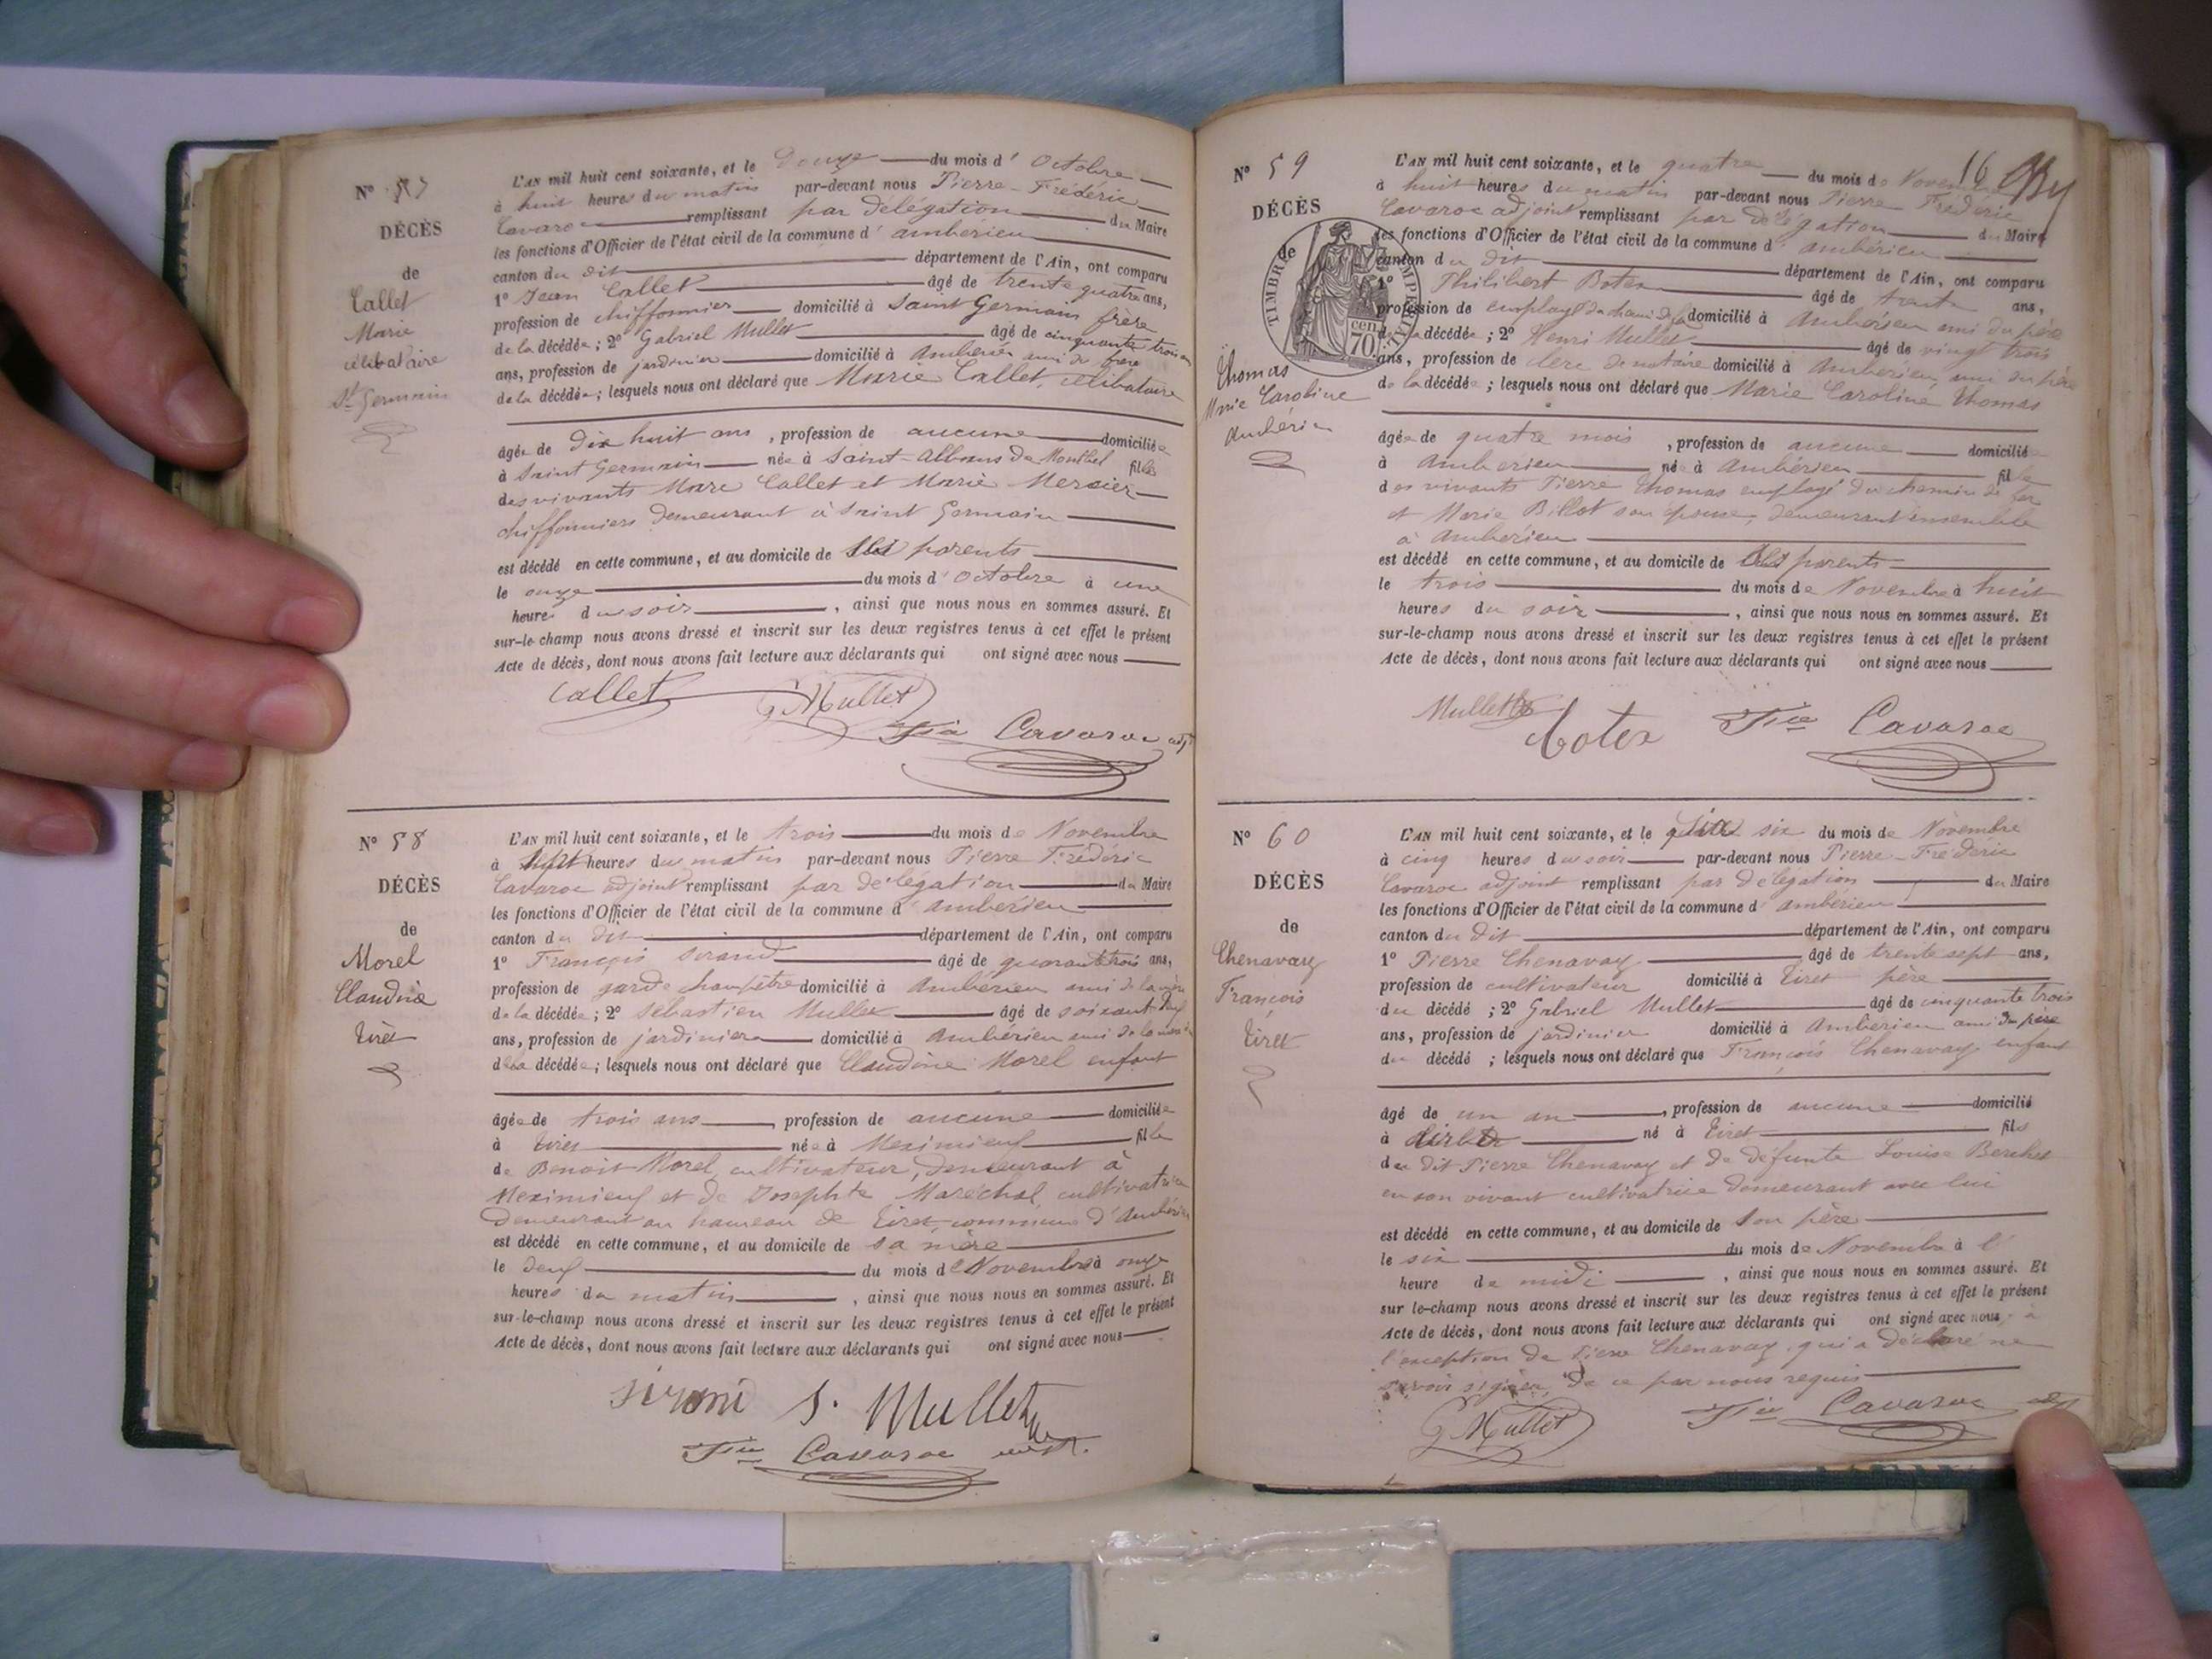 N° 57
DÉCÈS
de
Callet
Marie
célibataire
St Germain
L'AN mil huit cent soixante, et le Douze du mois d' Octobre
à huit heures du matin par-devant nous Pierre-Frédéric
Cavaroc remplissant par délégation du Maire
les fonctions d'Officier de l'état civil de la commune d' ambérieu
canton du dit département de l'Ain, ont comparu
1° Jean Callet âgé de trente quatre ans,
profession de chiffonnier domicilié à Saint Germain frère
de la décédée ; 2° Gabriel Mullet âgé de cinquante trois
ans, profession de jardinier domicilié à Ambérieu ami du frère
de la décédée ; lesquels nous ont déclaré que Marie Callet, célibataire
âgée de dix huit ans , profession de aucune domiciliée
à Saint Germain née à Saint-Albans de Montbel fille
des vivants Marc Callet et Marie Mercier
chiffonniers demeurant à Saint Germain
est décédé en cette commune, et au domicile de ses parents
le onze du mois d' Octobre à une
heure du soir , ainsi que nous nous en sommes assuré. Et
sur-le-champ nous avons dressé et inscrit sur les deux registres tenus à cet effet le présent
Acte de décès, dont nous avons fait lecture aux déclarants qui ont signé avec nous
Callet G Mullet
Cavaroc adjt
N° 58
DÉCÈS
de
Morel
Claudine
Tiret
L'AN mil huit cent soixante, et le trois du mois de Novembre
à sept heures du matin par-devant nous Pierre Frédéric
Cavaroc adjoint remplissant par délégation du Maire
les fonctions d'Officier de l'état civil de la commune d' ambérieu
canton du dit département de l'Ain, ont comparu
1° François Sirand âgé de quarante trois ans,
profession de garde champêtre domicilié à Ambérieu ami de la mère
de la décédée ; 2° Sébastien Mullet âgé de soixante
ans, profession de jardinier domicilié à Ambérieu ami de la mère
de la décédée ; lesquels nous ont déclaré que Claudine Morel enfant
âgée de trois ans , profession de aucune domiciliée
à Tiret née à Meximieux fille
de Benoit Morel, cultivateur, demeurant à
Meximieux et de Josephte Maréchal, cultivatrice
demeurant au hameau de Tiret, commune d'Ambérieu
est décédé en cette commune, et au domicile de sa mère
le deux du mois de Novembre à onze
heures du matin , ainsi que nous nous en sommes assuré. Et
sur-le-champ nous avons dressé et inscrit sur les deux registres tenus à cet effet le présent
Acte de décès, dont nous avons fait lecture aux déclarants qui ont signé avec nous
Sirand S. Mullet
Cavaroc
16
N° 59
DÉCÈS
de
TIMBRE IMPERIAL
70 cen
Thomas
Marie Caroline
Ambérieu
L'AN mil huit cent soixante, et le quatre du mois de Novembre
à huit heures du matin par-devant nous Pierre Frédéric
Cavaroc adjoint remplissant par délégation du Maire
les fonctions d'Officier de l'état civil de la commune d' ambérieu
canton du dit département de l'Ain, ont comparu
1° Philibert Botex âgé de trente ans,
profession de employé du chemin de fer domicilié à Ambérieu ami du père
de la décédée ; 2° Henri Mullet âgé de vingt trois
ans, profession de clerc de notaire domicilié à Ambérieu, ami du père
de la décédée ; lesquels nous ont déclaré que Marie Caroline Thomas
âgée de quatre mois , profession de aucune domiciliée
à Ambérieu née à Ambérieu fille
des vivants Pierre Thomas employé du chemin de fer
et Marie Billot son épouse, demeurant ensemble
à Ambérieu
est décédé en cette commune, et au domicile de ses parents
le trois du mois de Novembre à huit
heures du soir , ainsi que nous nous en sommes assuré. Et
sur-le-champ nous avons dressé et inscrit sur les deux registres tenus à cet effet le présent
Acte de décès, dont nous avons fait lecture aux déclarants qui ont signé avec nous
Mullet Botex Cavaroc
N° 60
DÉCÈS
de
Chenavay
François
Tiret
L'AN mil huit cent soixante, et le six du mois de Novembre
à cinq heures du soir par-devant nous Pierre-Frédéric
Cavaroc adjoint remplissant par délégation du Maire
les fonctions d'Officier de l'état civil de la commune d' ambérieu
canton du dit département de l'Ain, ont comparu
1° Pierre Chenavay âgé de trente sept ans,
profession de cultivateur domicilié à Tiret père
du décédé ; 2° Gabriel Mullet âgé de cinquante trois
ans, profession de jardinier domicilié à Ambérieu ami du père
du décédé ; lesquels nous ont déclaré que François Chenavay enfant
âgé de un an , profession de aucune domicilié
à Tiret né à Tiret fils
du dit Pierre Chenavay et de défunte Louise Berchet
en son vivant cultivatrice demeurant avec lui
est décédé en cette commune, et au domicile de son père
le six du mois de Novembre à l'
heure de midi , ainsi que nous nous en sommes assuré. Et
sur le-champ nous avons dressé et inscrit sur les deux registres tenus à cet effet le présent
Acte de décès, dont nous avons fait lecture aux déclarants qui ont signé avec nous, à
l'exception de Pierre Chenavay, qui a déclaré ne
savoir signer, de ce par nous requis
G Mullet Cavaroc adjt